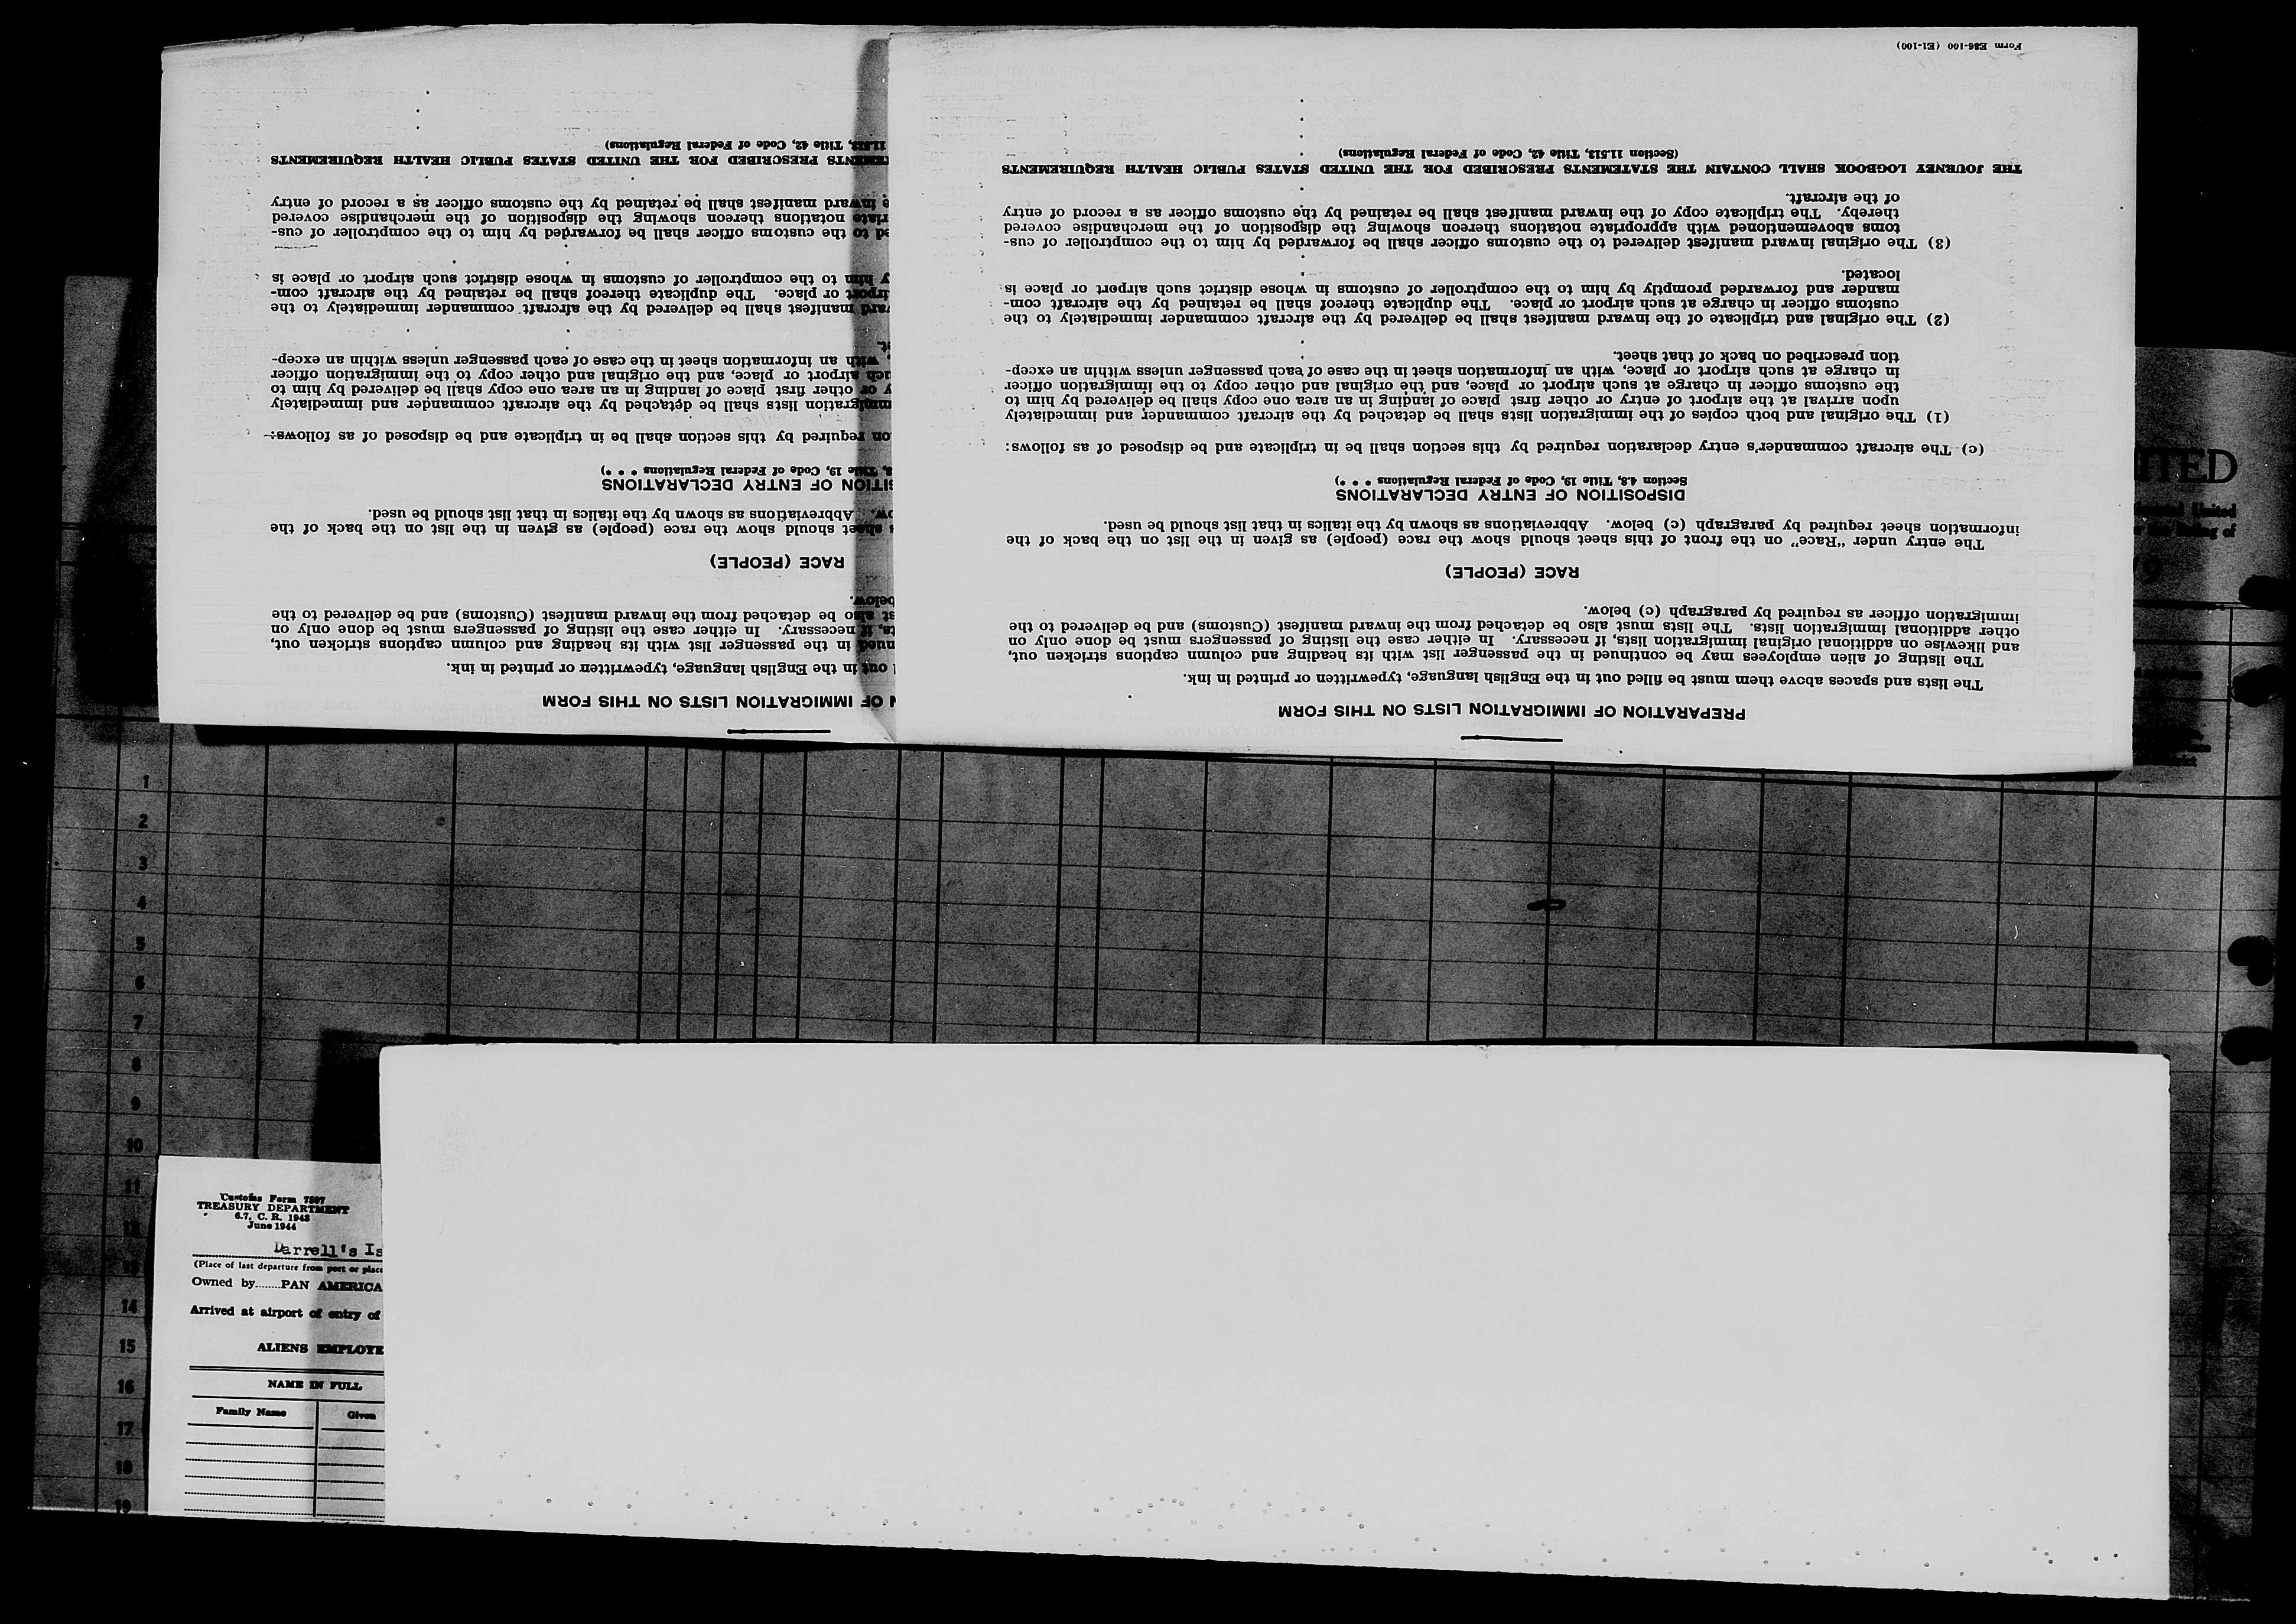 PREPARATION OF IMMIGRATION LISTS ON THIS FORM
The lists and spaces above them must be filled out in the English language, typewritten or printed in ink.
The listing of alien employees may be continued in the passenger list with its heading and column captions stricken out,
and likewise on additional original immigration lists, if necessary. In either case the listing of passengers must be done only on
other additional immigration lists. The lists must also be detached from the inward manifest (Customs) and be delivered to the
immigration officer as required by paragraph (c) below.
RACE (PEOPLE)
The entry under "Race" on the front of this sheet should show the race (people) as given in the list on the back of the
information sheet required by paragraph (c) below. Abbreviations as shown by the italics in that list should be used.
DISPOSITION OF ENTRY DECLARATIONS
Section 4.8, Title 19, Code of Federal Regulations * * *)
(c) The aircraft commander's entry declaration required by this section shall be in triplicate and be disposed of as follows:
(1) The original and both copies of the immigration lists shall be detached by the aircraft commander and immediately
upon arrival at the airport of entry or other first place of landing in an area one copy shall be delivered by him to
the customs officer in charge at such airport or place, and the original and other copy to the immigration officer
in charge at such airport or place, with an information sheet in the case of each passenger unless within an excep-
tion prescribed on back of that sheet.
(2) The original and triplicate of the inward manifest shall be delivered by the aircraft commander immediately to the
customs officer in charge at such airport or place. The duplicate thereof shall be retained by the aircraft com-
mander and forwarded promptly by him to the comptroller of customs in whose district such airport or place is
located.
(3) The original inward manifest delivered to the customs officer shall be forwarded by him to the comptroller of cus-
toms abovementioned with appropriate notations thereon showing the disposition of the merchandise covered
thereby. The triplicate copy of the inward manifest shall be retained by the customs officer as a record of entry
of the aircraft.
THE JOURNEY LOGBOOK SHALL CONTAIN THE STATEMENTS PRESCRIBED FOR THE UNITED STATES PUBLIC HEALTH REQUIREMENTS
(Section 11.513, Title 42, Code of Federal Regulations)
Form E86-100 (E1-100)
OF IMMIGRATION LISTS ON THIS FORM
out in the English language, typewritten or printed in ink.
in the passenger list with its heading and column captions stricken out,
if necessary. In either case the listing of passengers must be done only on
also be detached from the inward manifest (Customs) and be delivered to the
below.
RACE (PEOPLE)
sheet should show the race (people) as given in the list on the back of the
Abbreviations as shown by the italics in that list should be used.
OF ENTRY DECLARATIONS
Title 19, Code of Federal Regulations * * *)
required by this section shall be in triplicate and be disposed of as follows:
immigration lists shall be detached by the aircraft commander and immediately
or other first place of landing in an area one copy shall be delivered by him to
such airport or place, and the original and other copy to the immigration officer
with an information sheet in the case of each passenger unless within an excep-
manifest shall be delivered by the aircraft commander immediately to the
airport or place. The duplicate thereof shall be retained by the aircraft com-
him to the comptroller of customs in whose district such airport or place is
to the customs officer shall be forwarded by him to the comptroller of cus-
notations thereon showing the disposition of the merchandise covered
inward manifest shall be retained by the customs officer as a record of entry
PRESCRIBED FOR THE UNITED STATES PUBLIC HEALTH REQUIREMENTS
11.513, Title 42, Code of Federal Regulations)
ITED
United
of
9
1
2
3
4
5
6
7
8
9
10
11
14
15
16
17
18
19
Customs Form 7507
TREASURY DEPARTMENT
6.7, C. R. 1943
June 1944
Darrell's Is
(Place of last departure from port or place
Owned by PAN AMERICA
Arrived at airport of entry of
ALIENS EMPLOYE
NAME IN FULL
Family Name Given